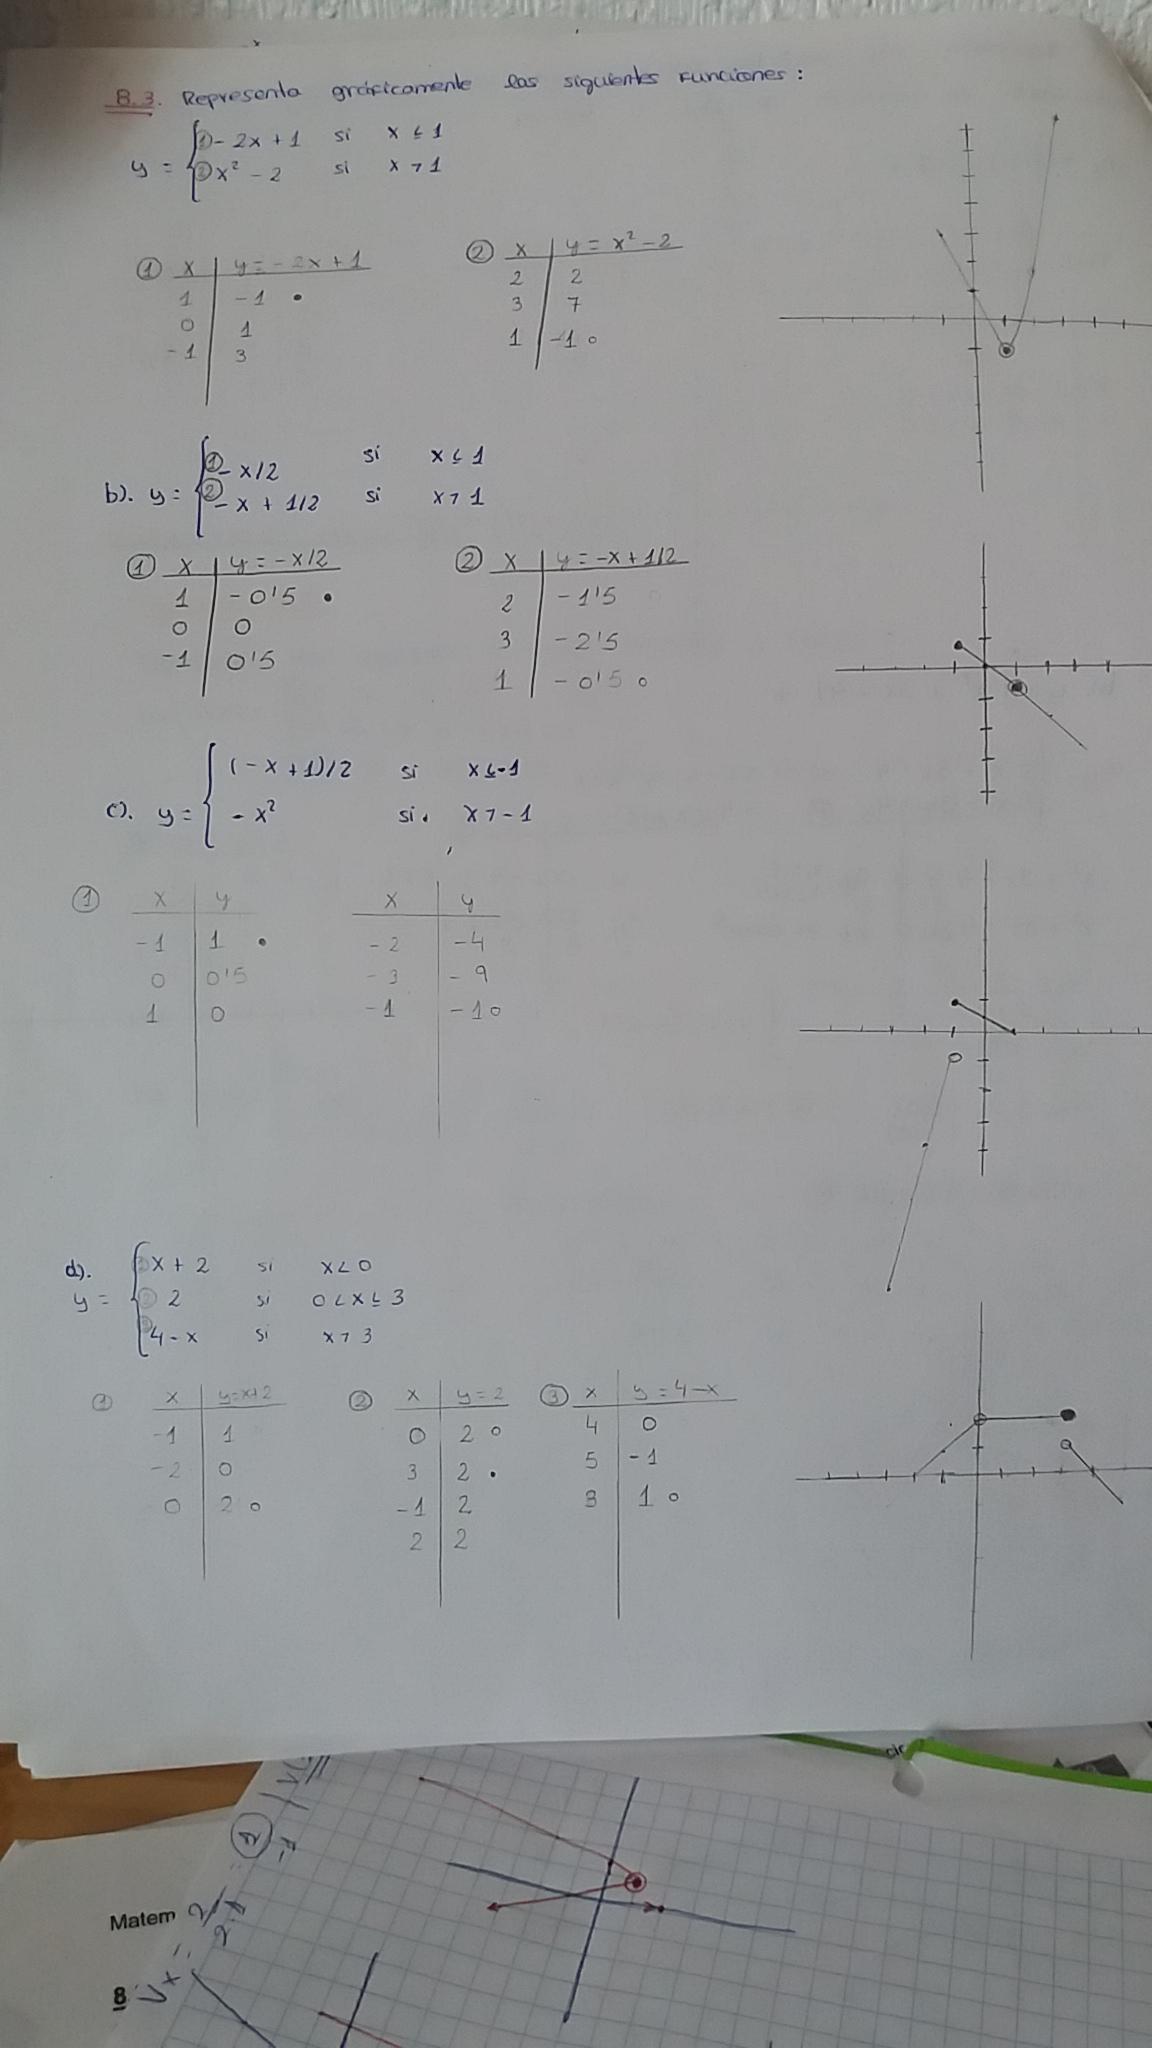 8.3. Representa gráficamente las siguientes funciones:
y = { ① - 2x + 1 si x ≤ 1
② x² - 2 si x > 1
① x | y = - 2x + 1
1 | -1 •
0 | 1
-1 | 3
② x | y = x² - 2
2 | 2
3 | 7
1 | -1 ○
b). y = { ① - x/2 si x ≤ 1
② - x + 1/2 si x > 1
① x | y = - x/2
1 | - 0'5 •
0 | 0
-1 | 0'5
② x | y = -x + 1/2
2 | - 1'5
3 | - 2'5
1 | - 0'5 ○
c). y = { (- x + 1)/2 si x ≤ -1
- x² si. x > - 1
① x | y
-1 | 1 •
0 | 0'5
1 | 0
x | y
-2 | -4
-3 | -9
-1 | -1 ○
d). y = { ① x + 2 si x < 0
② 2 si 0 < x ≤ 3
③ 4 - x si x > 3
① x | y = x+2
-1 | 1
-2 | 0
0 | 2 ○
② x | y = 2
0 | 2 ○
3 | 2 •
-1 | 2
2 | 2
③ x | y = 4-x
4 | 0
5 | -1
3 | 1 ○
cir
Matem
8